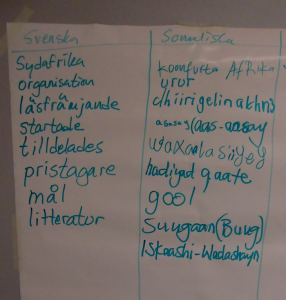 Svenska Somaliska
Sydafrika koonfurta Afrika
organisation urur
läsfrämjande dhiirigelin akhris
startade asasay (aas-aasay
tilldelades waxaa la siiyey
pristagare hadiyad qaate
mål gool
litterator Suugaan (Buug)
Iskaashi-Wadashayn